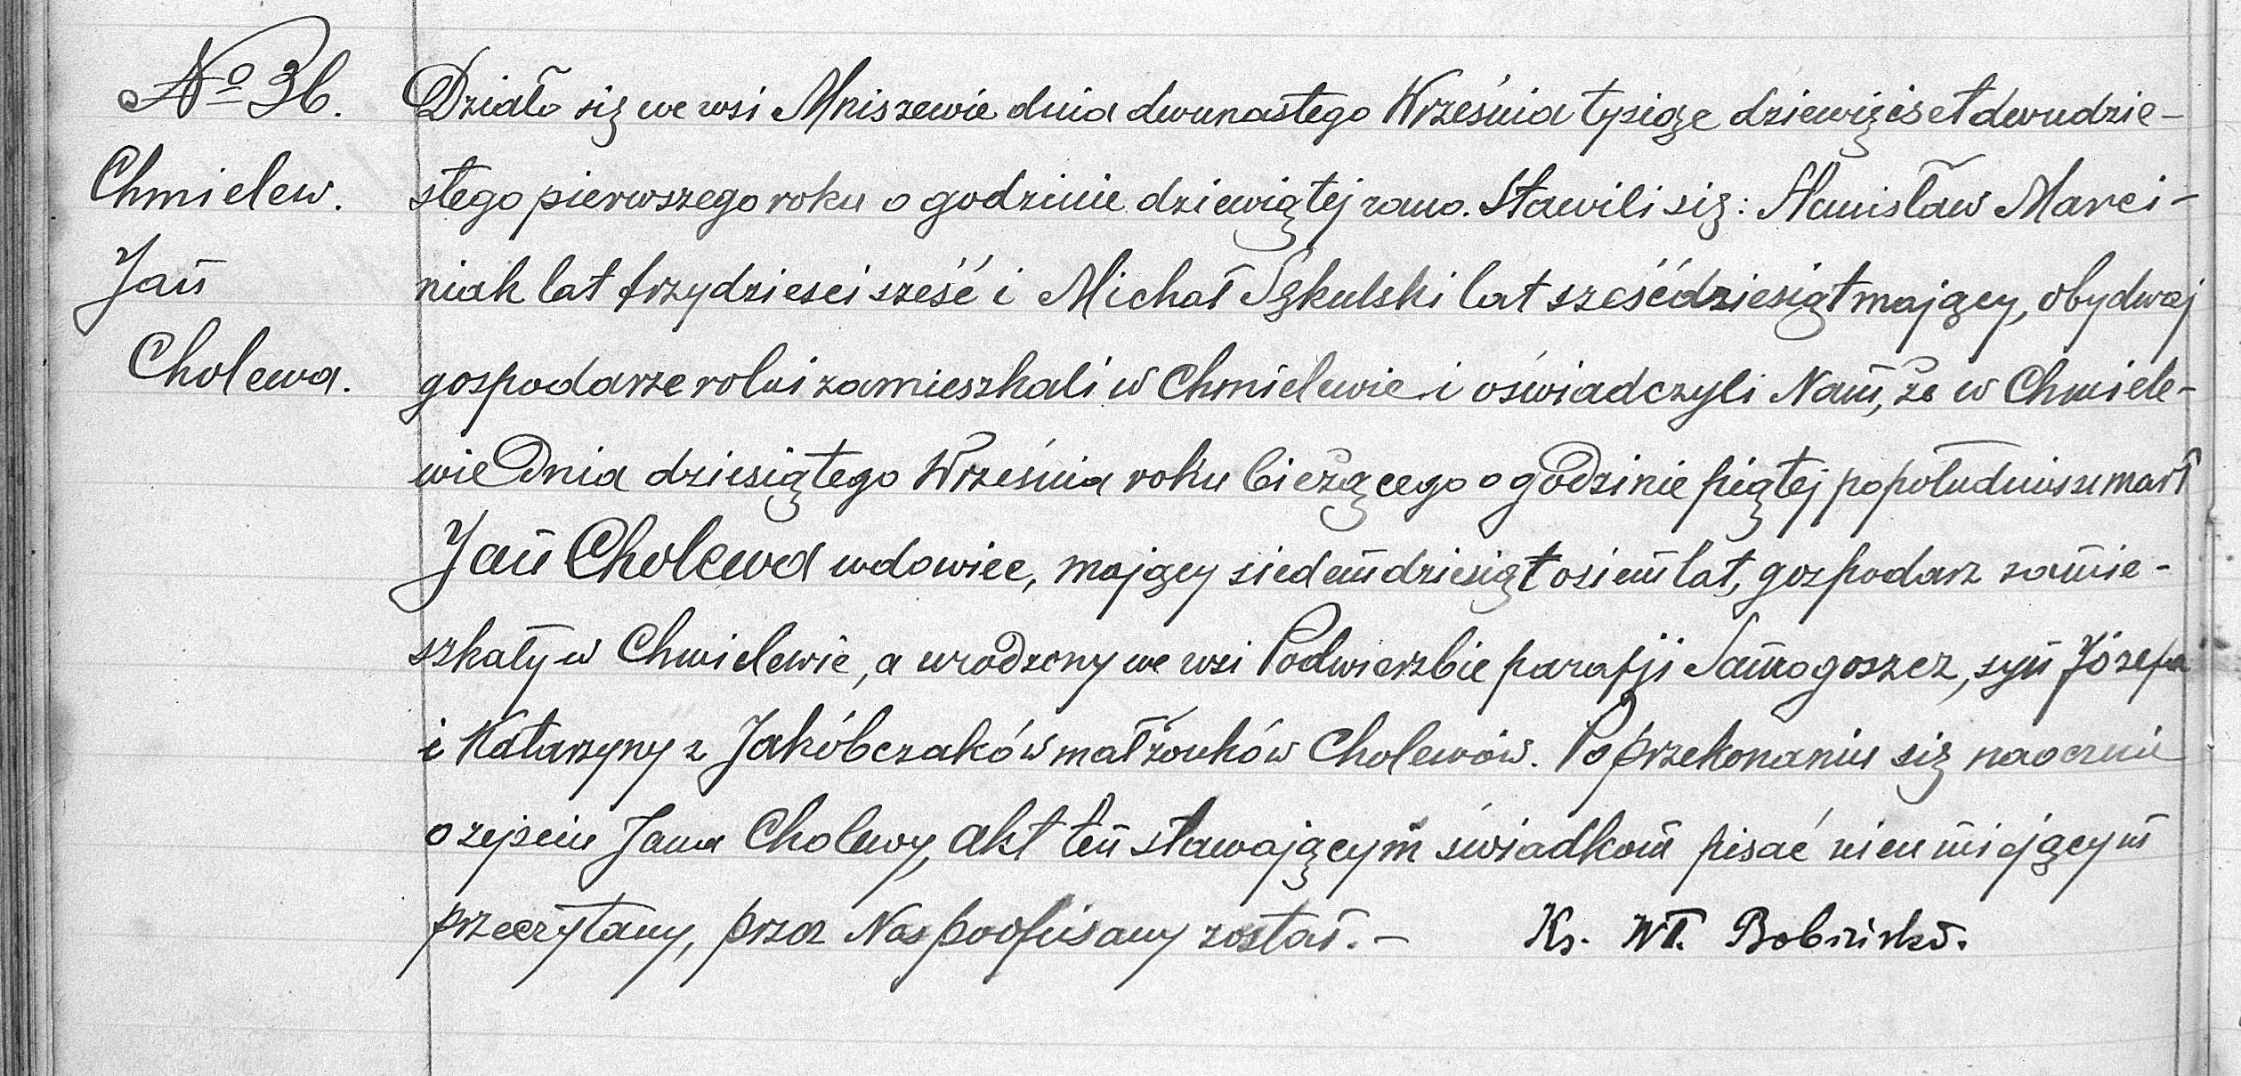 № 36.
Chmielew.
Jan
Cholewa.
Działo się we wsi Mniszewie dnia dwunastego Września tysiąc dziewięćset dwudzie-
stego pierwszego roku o godzinie dziewiątej rano. Stawili się: Stanisław Marci-
niak lat trzydzieści sześć i Michał Sękulski lat sześćdziesiąt mający, obydwaj
gospodarze rolni zamieszkali w Chmielewie i oświadczyli Nam, że w Chmiele-
wie Dnia dziesiątego Września roku bieżącego o godzinie piątej popołudniu umarł
Jan Cholewa wdowiec, mający siedemdziesiąt osiem lat, gospodarz zamie-
szkały w Chmielewie, a urodzony we wsi Podwierzbie parafji Samogoszcz, syn Józefa
i Katarzyny z Jakóbczaków małżonków Cholewów. Po przekonaniu się naocznie
o zejściu Jana Cholewy, akt ten stawającym świadkom pisać nieumiejącym
przeczytany, przez Nas podpisany został. —
Ks. Wł.